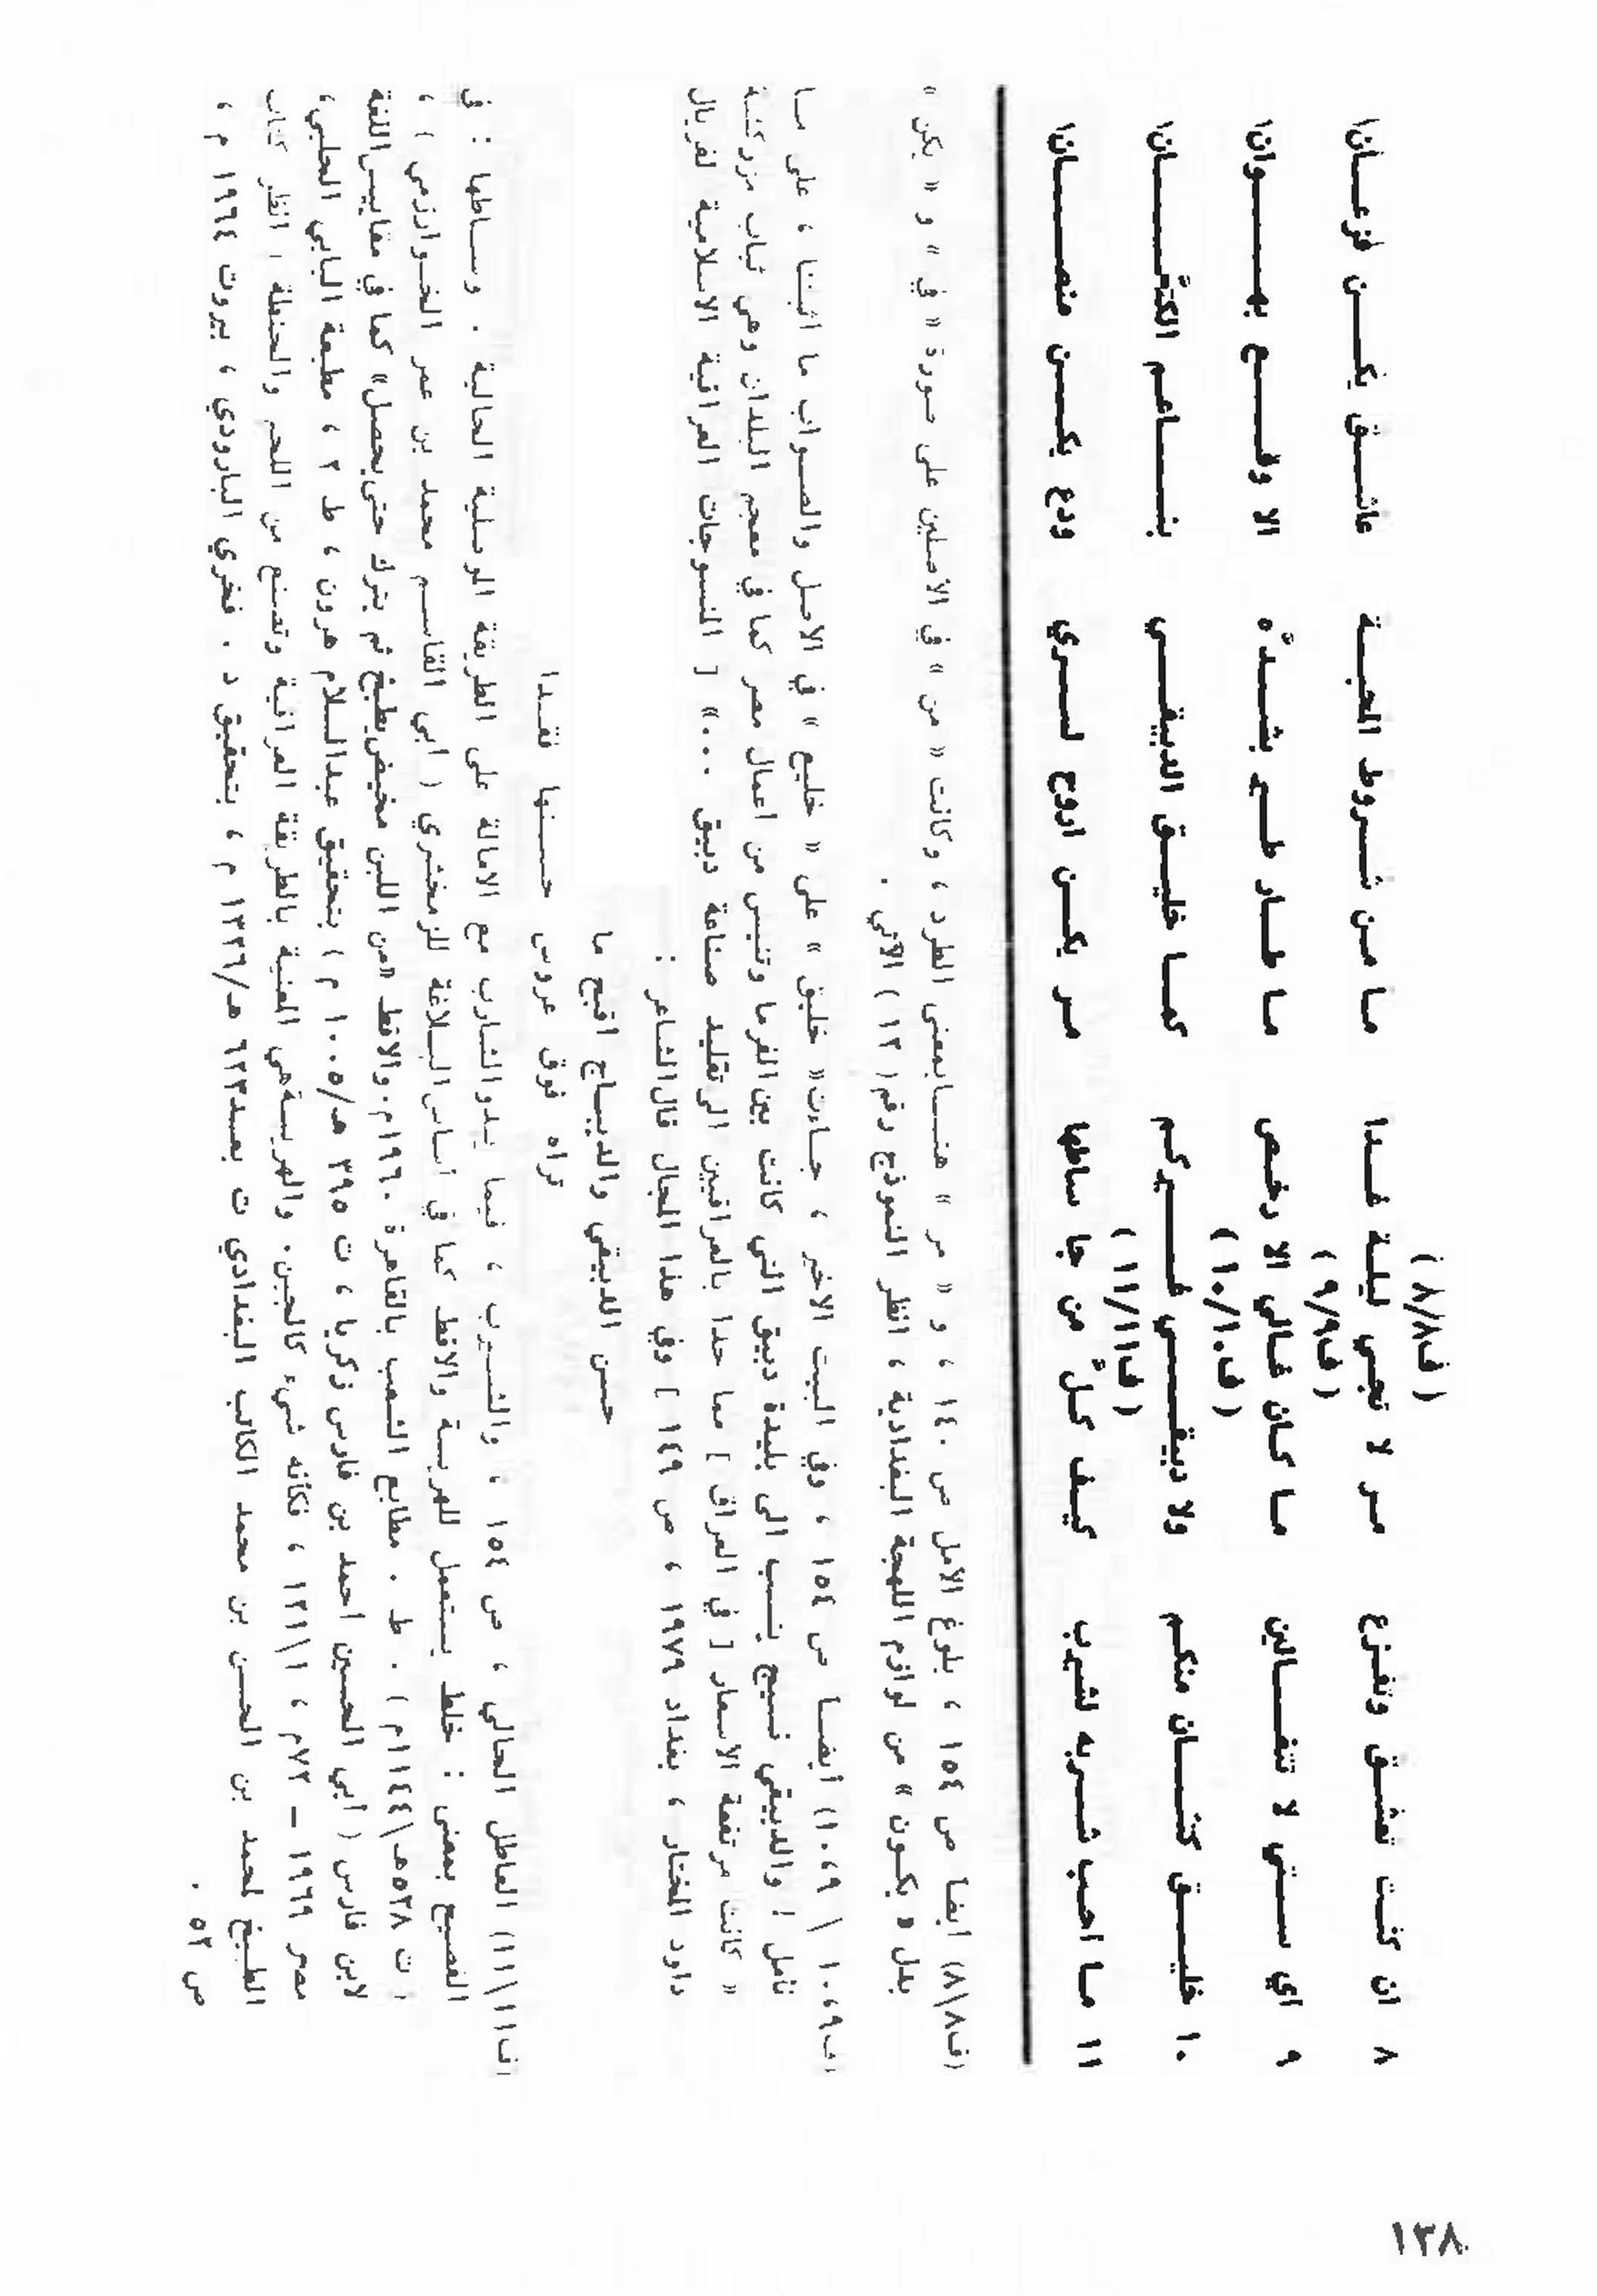 ٨ ان كنت تعشق وتفزع مر لا تجي ليلة غدا ما من شروط المحبة عاشق يكن فزعانا
(ف٨/٨)
٩ اي ستي لا تتغالين ما كان غالي الا رخص ما طار طير بشده الا وقع بهوانا
(ف٩/٩)
١٠ خليق كتان منكم ولا دبيقي غيركم كما خليق الدبيقي بناعم الكتانا
(ف١٠/١٠)
١١ ما احب شربه لشيرب كيف كل من جا ساطها مر يكن اروح لسري ودع يكن منصانا
(ف١١/١١)
(ف٨/٨) ايضا ص ١٥٤ ، بلوغ الأمل ص ١٤٠ ، و « مر » هنا بمعنى الطرد ، وكانت « من » في الأصلين على صورة « في » و « يكن »
بدل « يكون » من لوازم اللهجة البغدادية ، انظر النموذج رقم (١٢) الآتي .
(ف٩،١٠ / ٩،١٠) ايضا ص ١٥٤ ، وفي البيت الاخير ، جاءت « خليق » على « خليع » في الاصل والصواب ما اثبتنا ، على ما
نأمل ! والدبيقي نسيج ينسب الى بليدة دبيق التي كانت بين الفرما وتنيس من اعمال مصر كما في معجم البلدان وهي ثياب مزركشة
« كانت مرتفعة الاسعار [ في العراق ] مما حدا بالعراقيين الى تقليد صناعة دبيق ... » [ المنسوجات العراقية الاسلامية لفريال
داود المختار ، بغداد ١٩٧٩ ، ص ١٤٩ ] وفي هذا المجال قال الشاعر :
حسن الدبيقي والديباج اقبح ما
تراه فوق عروس حسنها نفدا
(ف١١/١١) العاطل الحالي ، ص ١٥٤ ، والشيرب ، فيما يبدو الشارب مع الامالة على الطريقة الموصلية الحالية . وساطها : في
الفصيح بمعنى : خلط يستعمل للهريسة والاقط كما في اساس البلاغة للزمخشري ( ابي القاسم محمد بن عمر الخوارزمي ) ،
( ت ٥٣٨هـ/١١٤٤م ) . ط . مطابع الشعب بالقاهرة ١٩٦٠م . والاقط «من اللبن مخيض يطبخ ثم يترك حتى يمصل» كما في مقاييس اللغة
لابن فارس ( أبي الحسين احمد بن فارس زكريا ، ت ٣٩٥ هـ/١٠٠٥ م ) بتحقيق عبدالسلام هرون ، ط ٢ ، مطبعة البابي الحلبي ،
مصر ١٩٦٩ – ٧٢م ، ١/١٢١ ، فكأنه شيء كالجبن . والهريسة هي المعنية بالطريقة العراقية وتصنع من اللحم والحنطة ! انظر كتاب
الطبيخ لمحمد بن الحسن بن محمد الكاتب البغدادي ت بعد ٦٢٣ هـ/١٢٢٦ م ، بتحقيق د . فخري البارودي ، بيروت ١٩٦٤ م ،
ص ٥٢ .
١٣٨